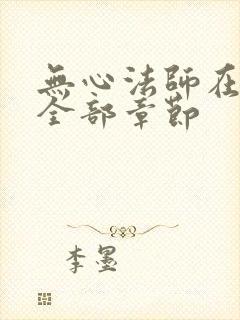 無心法師在
全部章節
李墨